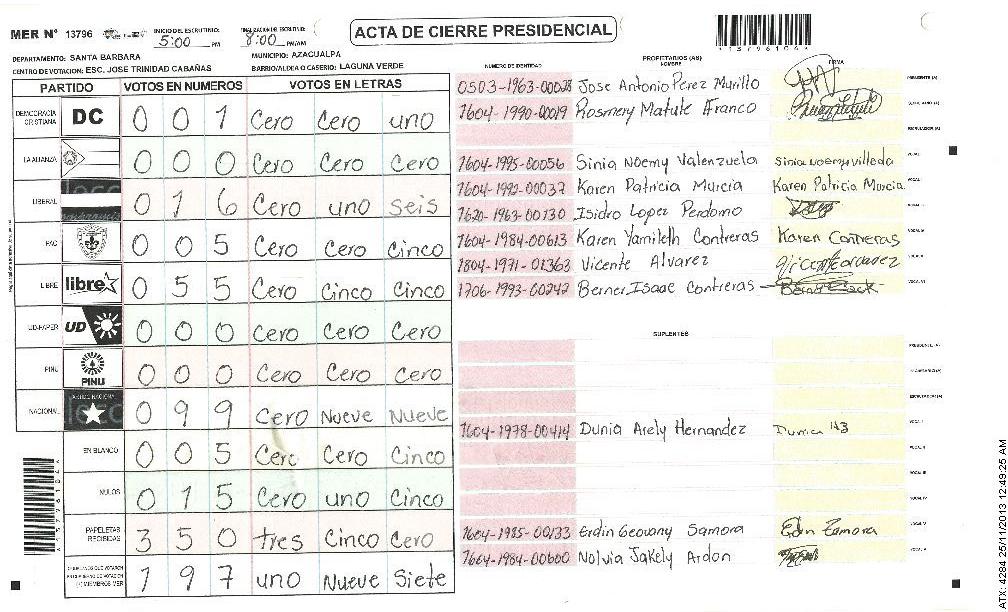 MER N° 13796
INICIO DEL ESCRUTINIO:
5:00 PM
FINALIZACION DEL ESCRUTINIO:
8:00 PM/AM
ACTA DE CIERRE PRESIDENCIAL
DEPARTAMENTO: SANTA BARBARA
MUNICIPIO: AZACUALPA
CENTRO DE VOTACION: ESC. JOSE TRINIDAD CABAÑAS
BARRIO/ALDEA O CASERIO: LAGUNA VERDE
PARTIDO VOTOS EN NUMEROS VOTOS EN LETRAS
DEMOCRACIA CRISTIANA DC 0 0 1 Cero Cero uno
LA ALIANZA 0 0 0 Cero Cero Cero
LIBERAL 0 1 6 Cero uno Seis
PAC 0 0 5 Cero Cero Cinco
LIBRE libre 0 5 5 Cero Cinco Cinco
UD-FAPER UD 0 0 0 Cero Cero Cero
PINU PINU 0 0 0 Cero Cero Cero
NACIONAL 0 9 9 Cero Nueve Nueve
EN BLANCO 0 0 5 Cero Cero Cinco
NULOS 0 1 5 Cero uno Cinco
PAPELETAS RECIBIDAS 3 5 0 tres Cinco Cero
1 9 7 uno Nueve Siete
PROPIETARIOS (AS)
NUMERO DE IDENTIDAD NOMBRE FIRMA
0503-1963-00028 Jose Antonio Perez Murillo PRESIDENTE (A)
1604-1990-00019 Rosmery Matute Franco
1604-1995-00056 Sinia Noemy Valenzuela
1604-1992-00037 Karen Patricia Murcia Karen Patricia Murcia
1620-1963-00130 Isidro Lopez Perdomo
1604-1984-00613 Karen Yamileth Contreras Karen Contreras
1804-1971-01363 Vicente Alvarez
1706-1993-00242 Berner Isaac Contreras
SUPLENTES
PRESIDENTE (A)
1604-1978-00414 Dunia Arely Hernandez
1604-1985-00133 Erdin Geovany Samora
1604-1984-00600 Nolvia Jakely Ardon
ATX: 4284 25/11/2013 12:49:25 AM